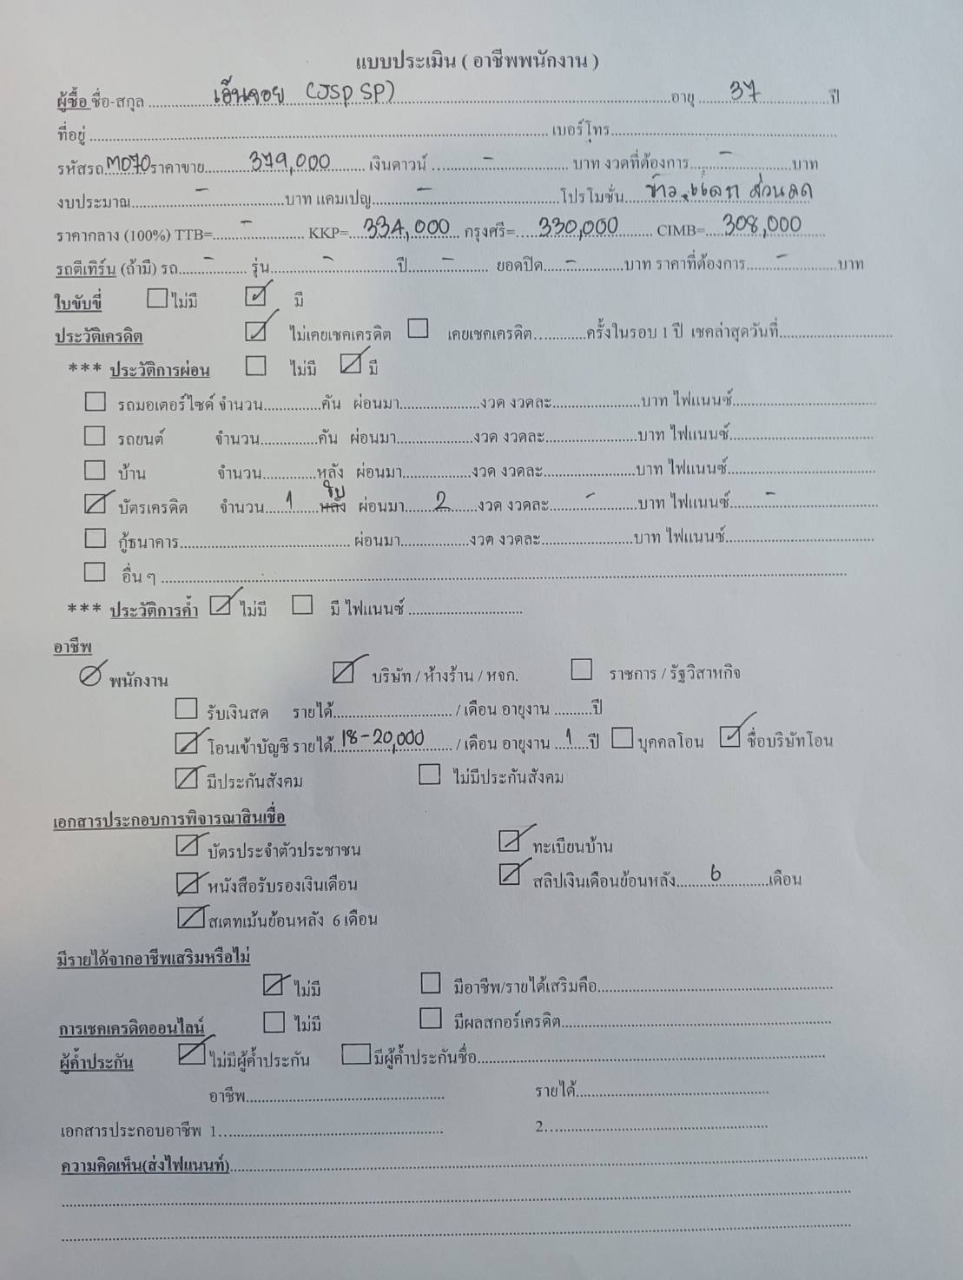 แบบประเมิน ( อาชีพพนักงาน )
ผู้ซื้อ ชื่อ-สกุล ........ เอ็นจอย (JSP SP) ........ อายุ ...... 37 ...... ปี
ที่อยู่ ........ เบอร์โทร........
รหัสรถ M070 ราคาขาย...... 379,000 ...... เงินดาวน์ ...... - ...... บาท งวดที่ต้องการ...... - ......บาท
งบประมาณ...... - ......บาท แคมเปญ...... - ......โปรโมชั่น ...... ส่วนลด
ราคากลาง (100%) TTB=...... - ...... KKP=.. 334,000 .. กรุงศรี=.... 330,000 .... CIMB=.. 308,000
รถตีเทิร์น (ถ้ามี) รถ...... - ...... รุ่น...... - ......ปี...... - ...... ยอดปิด...... - ......บาท ราคาที่ต้องการ...... - ......บาท
ใบขับขี่ ☐ ไม่มี ☑ มี
ประวัติเครดิต ☑ ไม่เคยเชคเครดิต ☐ เคยเชคเครดิต............ครั้งในรอบ 1 ปี เชคล่าสุดวันที่............
*** ประวัติการผ่อน ☐ ไม่มี ☑ มี
☐ รถมอเตอร์ไซด์ จำนวน............คัน ผ่อนมา............งวด งวดละ............บาท ไฟแนนซ์............
☐ รถยนต์ จำนวน............คัน ผ่อนมา............งวด งวดละ............บาท ไฟแนนซ์............
☐ บ้าน จำนวน............หลัง ผ่อนมา............งวด งวดละ............บาท ไฟแนนซ์............
☑ บัตรเครดิต จำนวน.... 1 ....หลัง ใบ ผ่อนมา.... 2 ....งวด งวดละ.... - ....บาท ไฟแนนซ์.... - ....
☐ กู้ธนาคาร............ ผ่อนมา............งวด งวดละ............บาท ไฟแนนซ์............
☐ อื่น ๆ ............
*** ประวัติการค้ำ ☑ ไม่มี ☐ มี ไฟแนนซ์ ............
อาชีพ
พนักงาน ☑ บริษัท / ห้างร้าน / หจก. ☐ ราชการ / รัฐวิสาหกิจ
☐ รับเงินสด รายได้............ / เดือน อายุงาน ..........ปี
☑ โอนเข้าบัญชี รายได้.. 18-20,000 ...... / เดือน อายุงาน .. 1 ..ปี ☐ บุคคลโอน ☑ ชื่อบริษัทโอน
☑ มีประกันสังคม ☐ ไม่มีประกันสังคม
เอกสารประกอบการพิจารณาสินเชื่อ
☑ บัตรประจำตัวประชาชน ☑ ทะเบียนบ้าน
☑ หนังสือรับรองเงินเดือน ☑ สลิปเงินเดือนย้อนหลัง...... 6 ......เดือน
☑ สเตทเม้นย้อนหลัง 6 เดือน
มีรายได้จากอาชีพเสริมหรือไม่
☑ ไม่มี ☐ มีอาชีพ/รายได้เสริมคือ............
การเชคเครดิตออนไลน์ ☐ ไม่มี ☐ มีผลสกอร์เครดิต............
ผู้ค้ำประกัน ☑ ไม่มีผู้ค้ำประกัน ☐ มีผู้ค้ำประกันชื่อ............
อาชีพ............ รายได้............
เอกสารประกอบอาชีพ 1............ 2............
ความคิดเห็น(ส่งไฟแนนท์)............